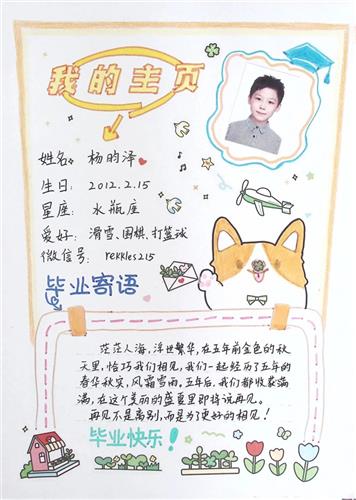 我的主页
姓名：杨昀泽
生日：2012.2.15
星座：水瓶座
爱好：滑雪、围棋、打篮球
微信号：rekkles215
毕业寄语
茫茫人海，浮世繁华，在五年前金色的秋
天里，恰巧我们相见，我们一起经历了五年的
春华秋实，风霜雪雨，五年后，我们都收获满
满，在这个美丽的盛夏里即将说再见。
再见不是离别，而是为了更好的相见！
毕业快乐！